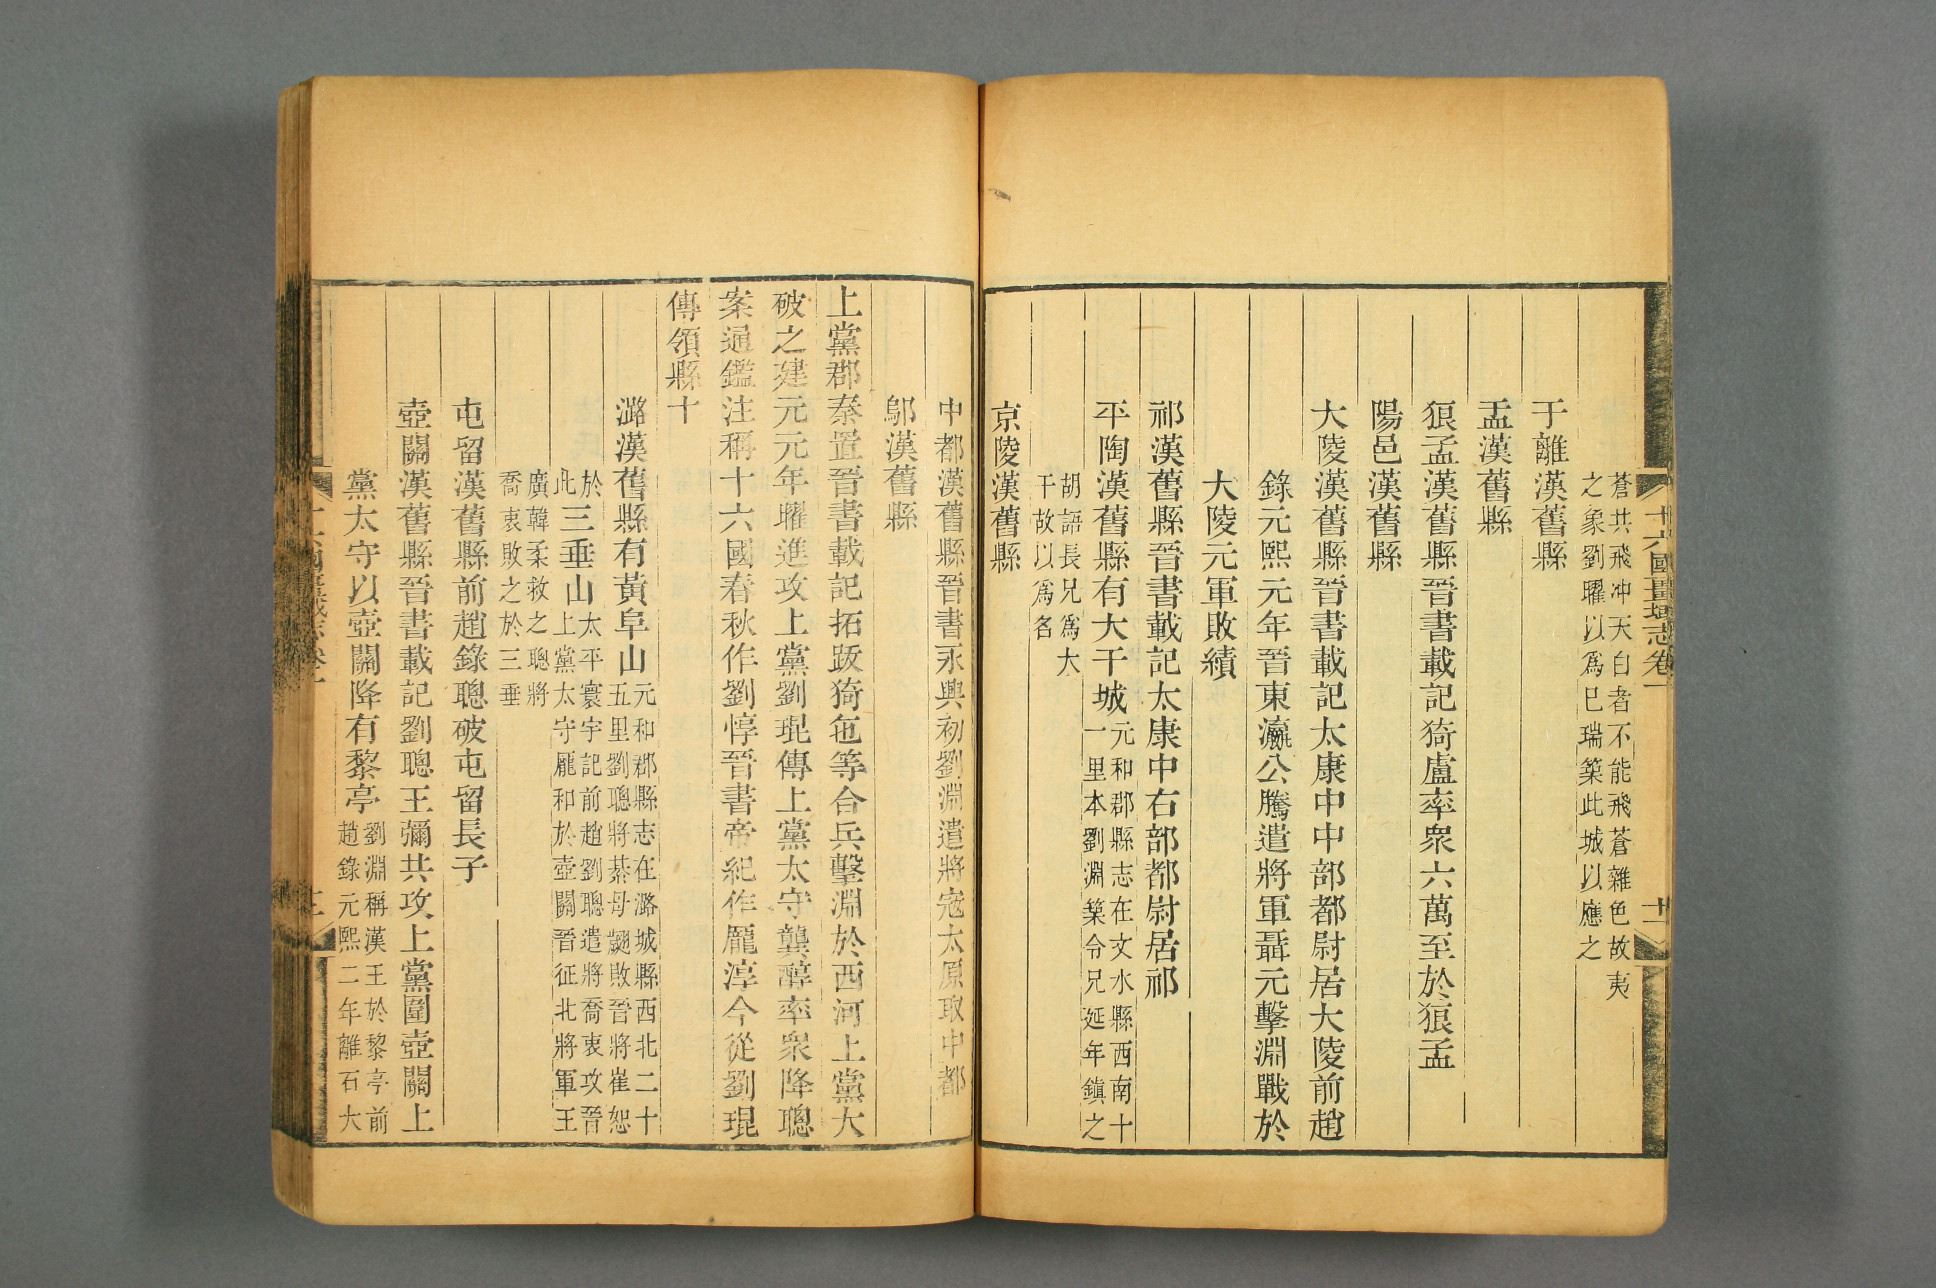 十六國疆域志卷一
十一
蒼共飛冲天白者不能飛蒼雜色故夷
之象劉曜以爲巳瑞築此城以應之
于離漢舊縣
盂漢舊縣
狼孟漢舊縣晉書載記猗盧率衆六萬至於狼孟
陽邑漢舊縣
大陵漢舊縣晉書載記太康中中部都尉居大陵前趙
錄元熙元年晉東瀛公騰遣將軍聶元擊淵戰於
大陵元軍敗績
祁漢舊縣晉書載記太康中右部都尉居祁
平陶漢舊縣有大干城
元和郡縣志在文水縣西南十
一里本劉淵築令兄延年鎮之
胡語長兄爲大
干故以爲名
京陵漢舊縣
中都漢舊縣晉書永興初劉淵遣將寇太原取中都
鄔漢舊縣
上黨郡秦置晉書載記拓跋猗㐌等合兵擊淵於西河上黨大
破之建元元年曜進攻上黨劉琨傳上黨太守龔醇率衆降聰
案通鑑注稱十六國春秋作劉惇晉書帝紀作龐淳今從劉琨
傳領縣十
潞漢舊縣有黃阜山
元和郡縣志在潞城縣西北二十
五里劉聰將綦母翽敗晉將崔恕
於
此
三垂山
太平寰宇記前趙劉聰遣將喬衷攻晉
上黨太守龐和於壺關晉征北將軍王
廣韓柔救之聰將
喬衷敗之於三垂
屯留漢舊縣前趙錄聰破屯留長子
壺關漢舊縣晉書載記劉聰王彌共攻上黨圍壺關上
黨太守以壺關降有黎亭
劉淵稱漢王於黎亭前
趙錄元熙二年離石大